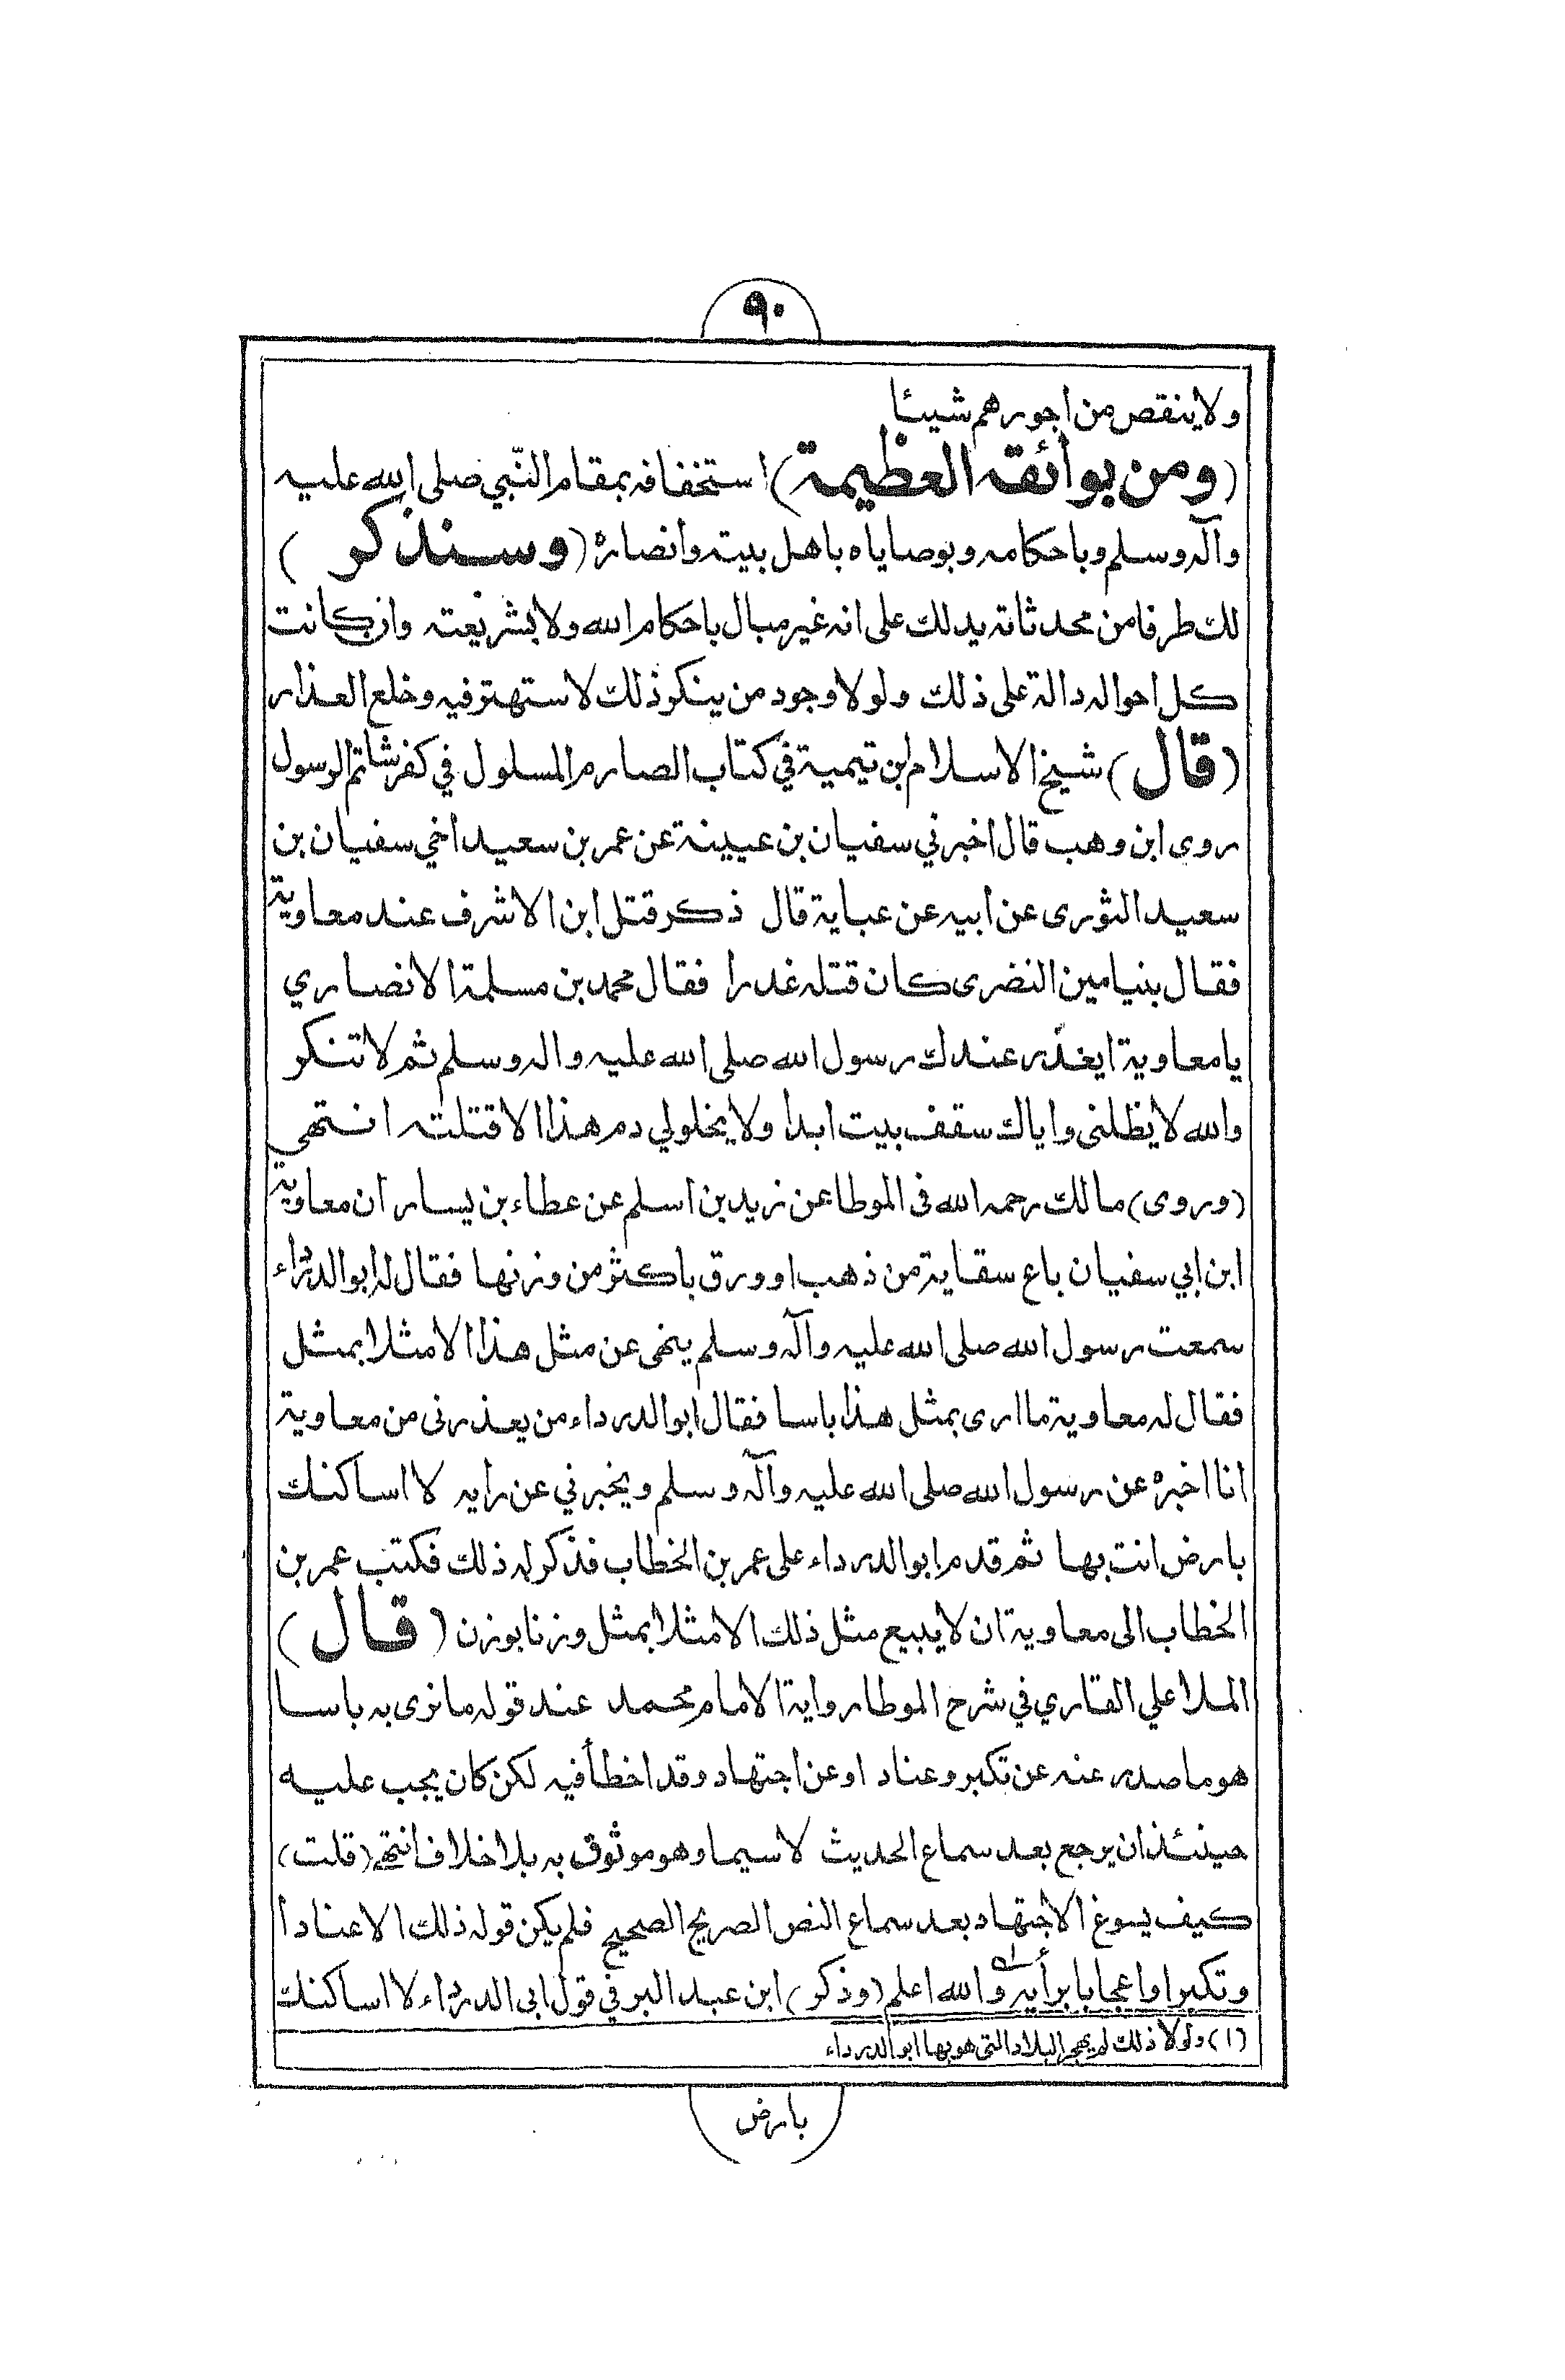 ٩٠
ولا ينقص من اجورهم شيئا
(ومن بوائقه العظيمة) استخفافه بمقام النّبي صلى الله عليه
وآله وسلم وباحكامه وبوصاياه باهل بيته وانصاره (وسنذكر)
لك طرفا من محدثاته يدلك على انه غير مبال باحكام الله ولا بشريعته وان كانت
كل احواله دالة على ذلك ولولا وجود من ينكر ذلك لاستهتر فيه وخلع العذار
(قال) شيخ الاسلام ابن تيمية في كتاب الصارم المسلول في كفر شاتم الرسول
روى ابن وهب قال اخبرني سفيان بن عيينة عن عمر بن سعيد اخي سفيان بن
سعيد الثورى عن ابيه عن عباية قال ذكر قتل ابن الاشرف عند معاوية
فقال بنيامين النضرى كان قتله غدرا فقال محمد بن مسلمة الانصاري
يا معاوية ايغدّر عندك رسول الله صلى الله عليه واله وسلم ثم لا تنكر
والله لا يظلنى واياك سقف بيت ابدا ولا يخلو لي دم هذا الا قتلته انتهى
(وروى) مالك رحمه الله فى الموطا عن زيد بن اسلم عن عطاء بن يسار ان معاوية
ابن ابي سفيان باع سقاية من ذهب او ورق باكثر من وزنها فقال له ابو الدرداء
سمعت رسول الله صلى الله عليه وآله وسلم ينهى عن مثل هذا الا مثلا بمثل
فقال له معاوية ما ارى بمثل هذا باسا فقال ابو الدرداء من يعذرنى من معاوية
انا اخبره عن رسول الله صلى الله عليه وآله وسلم ويخبرني عن رايه لا اساكنك
بارض انت بها ثم قدم ابو الدرداء على عمر بن الخطاب فذكر له ذلك فكتب عمر بن
الخطاب الى معاوية ان لا يبيع مثل ذلك الا مثلا بمثل وزنا بوزن (قال)
الملا علي القاري في شرح الموطا رواية الامام محمد عند قوله ما نرى به باسا
هو ما صدر عنه عن تكبر وعناد او عن اجتهاد وقد اخطأ فيه لكن كان يجب عليه
حينئذ ان يرجع بعد سماع الحديث لا سيما وهو موثوق به بلا خلاف انتهى (قلت)
كيف يسوغ الاجتهاد بعد سماع النص الصريح الصحيح فلم يكن قوله ذلك الا عنادا
وتكبرا واعجابا برأيه والله اعلم (وذكر) ابن عبد البر في قول ابى الدرداء لا اساكنك
(١) ولولا ذلك لم يهجر البلاد التى هو بها ابو الدرداء
بارض